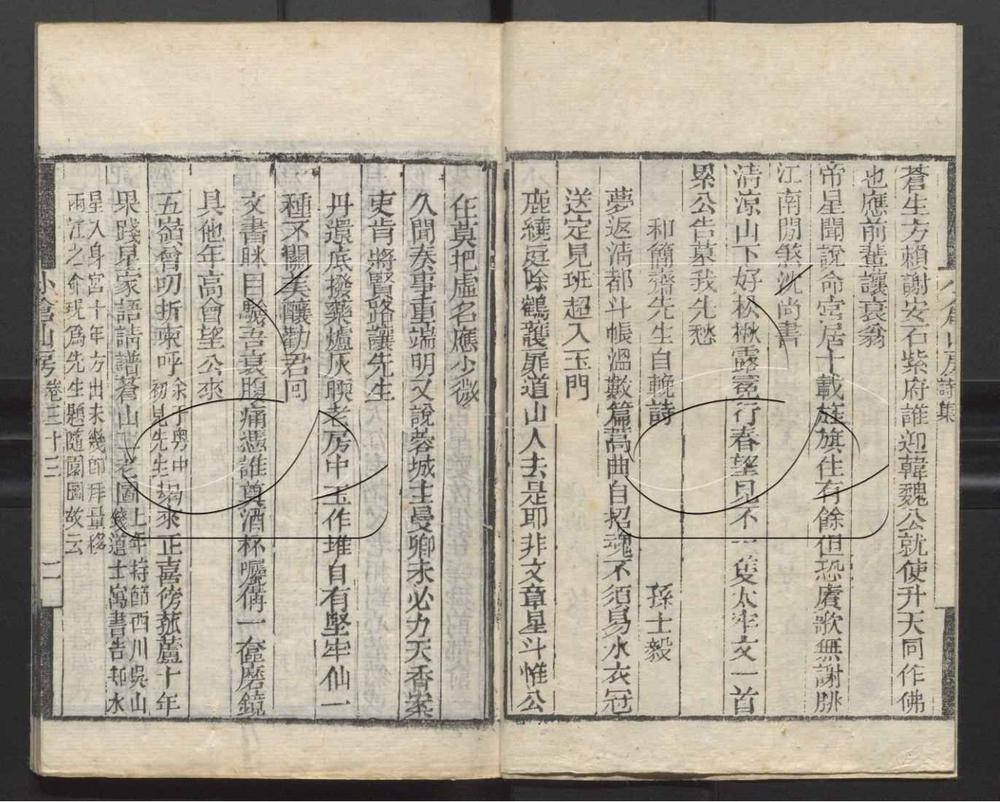 小倉山房詩集
蒼生方賴謝安石紫府誰迎韓魏公就使升天同作佛
也應前輩讓衰翁
帝星聞說命宮居十載旌旗住有餘但恐賡歌無謝朓
江南閒煞沈尚書
清凉山下好松楸露冕行春望見不一隻太牢文一首
累公告墓我先愁
和簡齋先生自輓詩
孫士毅
夢返清都斗帳溫數篇蒿曲自招魂不須易水衣冠
送定見班超入玉門
鹿繞庭除鶴護扉道山人去是耶非文章星斗惟公
在莫把虛名應少微
久聞奏事重端明又說蓉城主曼卿未必力天香案
吏肯將賢路讓先生
丹還底撥藥爐灰暝老房中玉作堆自有堅牢仙一
種不關美釀勸君回
文書眯目驗吾衰腹痛憑誰奠酒杯囑備一奩磨鏡
具他年高會望公來
五嶺曾叨折柬呼余于粤中初見先生朅來正喜傍菰蘆十年
果踐星家語請譜蒼山二老圖上年持節西川吳山幾道士寓書告却水
星入身宮十年方出未幾卽拜量移
兩江之命現為先生題隨園圖故云
小倉山房
卷三十三
二